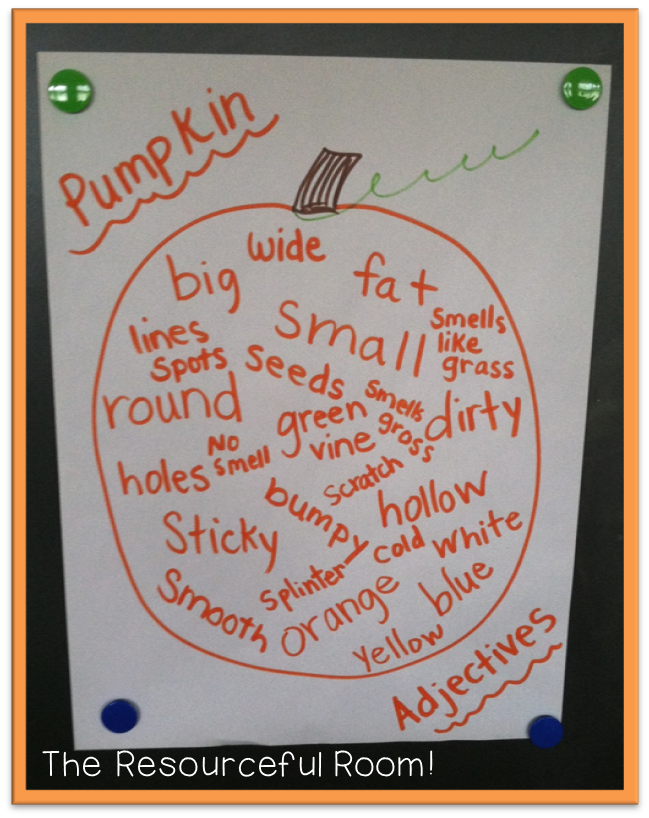 Pumpkin
wide
big
fat
small
lines
Smells
like
grass
spots
seeds
round
green
vine
smells
gross
dirty
holes
No
smell
scratch
bumpy
hollow
Sticky
cold
white
splinter
Smooth
orange
blue
yellow
Adjectives
The Resourceful Room!